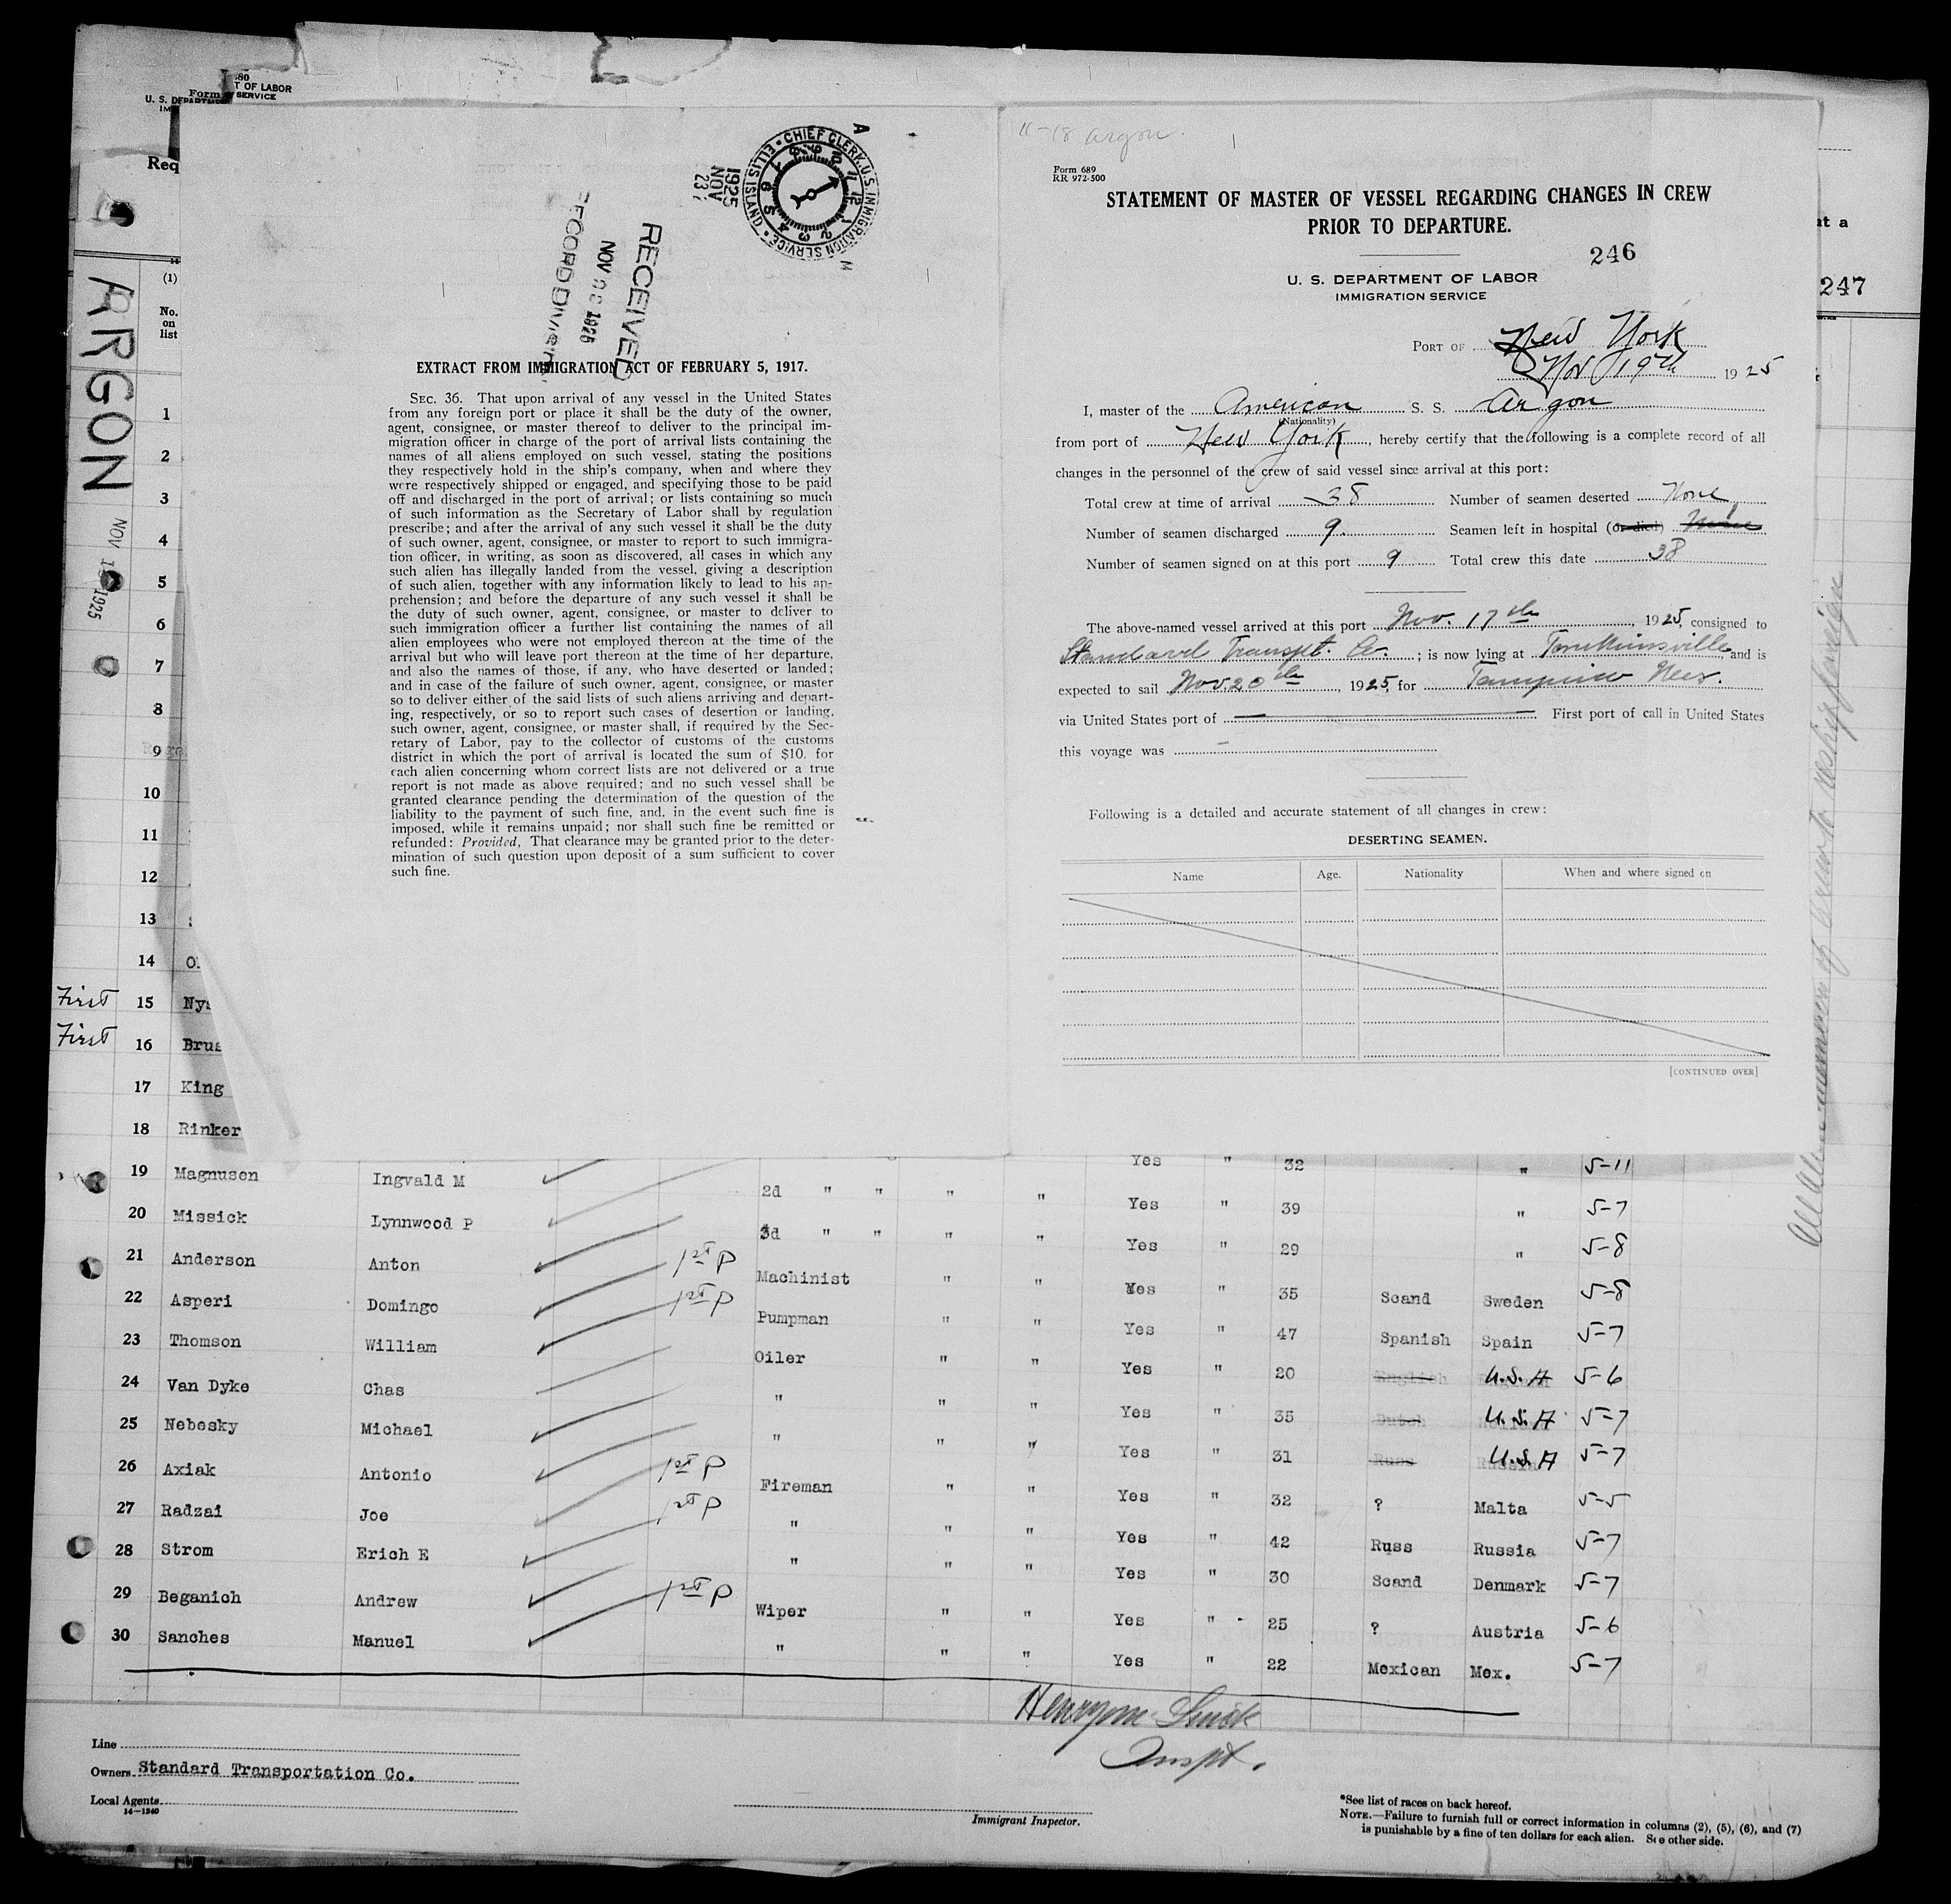 Form 680
U. S. DEPARTMENT OF LABOR
IMMIGRATION SERVICE
Req
ARGON
NOV 1 1925
(1)
No.
on
list
A
CHIEF CLERK, U.S. IMMIGRATION SERVICE • ELLIS ISLAND •
M
1925
NOV
23
RECEIVED
NOV 1925
RECORD DIVISION
EXTRACT FROM IMMIGRATION ACT OF FEBRUARY 5, 1917.
SEC. 36. That upon arrival of any vessel in the United States
from any foreign port or place it shall be the duty of the owner,
agent, consignee, or master thereof to deliver to the principal im-
migration officer in charge of the port of arrival lists containing the
names of all aliens employed on such vessel, stating the positions
they respectively hold in the ship's company, when and where they
were respectively shipped or engaged, and specifying those to be paid
off and discharged in the port of arrival; or lists containing so much
of such information as the Secretary of Labor shall by regulation
prescribe; and after the arrival of any such vessel it shall be the duty
of such owner, agent, consignee, or master to report to such immigra-
tion officer, in writing, as soon as discovered, all cases in which any
such alien has illegally landed from the vessel, giving a description
of such alien, together with any information likely to lead to his ap-
prehension; and before the departure of any such vessel it shall be
the duty of such owner, agent, consignee, or master to deliver to
such immigration officer a further list containing the names of all
alien employees who were not employed thereon at the time of the
arrival but who will leave port thereon at the time of her departure,
and also the names of those, if any, who have deserted or landed;
and in case of the failure of such owner, agent, consignee, or master
so to deliver either of the said lists of such aliens arriving and depart-
ing, respectively, or so to report such cases of desertion or landing,
such owner, agent, consignee, or master shall, if required by the Sec-
retary of Labor, pay to the collector of customs of the customs
district in which the port of arrival is located the sum of $10. for
each alien concerning whom correct lists are not delivered or a true
report is not made as above required; and no such vessel shall be
granted clearance pending the determination of the question of the
liability to the payment of such fine, and, in the event such fine is
imposed, while it remains unpaid; nor shall such fine be remitted or
refunded: Provided, That clearance may be granted prior to the deter-
mination of such question upon deposit of a sum sufficient to cover
such fine.
11-18 argon.
Form 689
RR 972-500
STATEMENT OF MASTER OF VESSEL REGARDING CHANGES IN CREW
PRIOR TO DEPARTURE.
246
U. S. DEPARTMENT OF LABOR
IMMIGRATION SERVICE
PORT OF New York
Nov 19th 1925
I, master of the American S. S. Argon
(Nationality)
from port of New York, hereby certify that the following is a complete record of all
changes in the personnel of the crew of said vessel since arrival at this port:
Total crew at time of arrival 38 Number of seamen deserted None
Number of seamen discharged 9. Seamen left in hospital (or died) None
Number of seamen signed on at this port 9 Total crew this date 38
The above-named vessel arrived at this port Nov. 17th, 1925, consigned to
Standard Transpt. Co.; is now lying at Tomkinsville and is
expected to sail Nov. 20th, 1925, for Tampico Mex.
via United States port of First port of call in United States
this voyage was
Following is a detailed and accurate statement of all changes in crew:
DESERTING SEAMEN.
Name Age. Nationality When and where signed on
[CONTINUED OVER]
at a
247
All members of crew to reship foreign
1
2
3
4
5
6
7
8
9
10
11
12
13
14 O
First 15 Nys
First 16 Brus
17 King
18 Rinker
Yes " 32 " 5-11
19 Magnusen Ingvald M 2d " " " " Yes " 39 " 5-7
20 Missick Lynnwood P 3d " " " " Yes " 29 " 5-8
21 Anderson Anton 1st P Machinist " " Yes " 35 Scand Sweden 5-8
22 Asperi Domingo 1st P Pumpman " " Yes " 47 Spanish Spain 5-7
23 Thomson William Oiler " " Yes " 20 English U.S.A 5-6
24 Van Dyke Chas " " " Yes " 35 Dutch U.S.A 5-7
25 Nebesky Michael " " " Yes " 31 Russ U.S.A 5-7
26 Axiak Antonio 1st P Fireman " " Yes " 32 ? Malta 5-5
27 Radzai Joe 1st P " " " Yes " 42 Russ Russia 5-7
28 Strom Erich E " " " Yes " 30 Scand Denmark 5-7
29 Beganich Andrew 1st P Wiper " " Yes " 25 ? Austria 5-6
30 Sanches Manuel " " " Yes " 22 Mexican Mex. 5-7
Inspt.
Line
Owners Standard Transportation Co.
Local Agents
14-1240
Immigrant Inspector.
*See list of races on back hereof.
NOTE.—Failure to furnish full or correct information in columns (2), (5), (6), and (7)
is punishable by a fine of ten dollars for each alien. See other side.